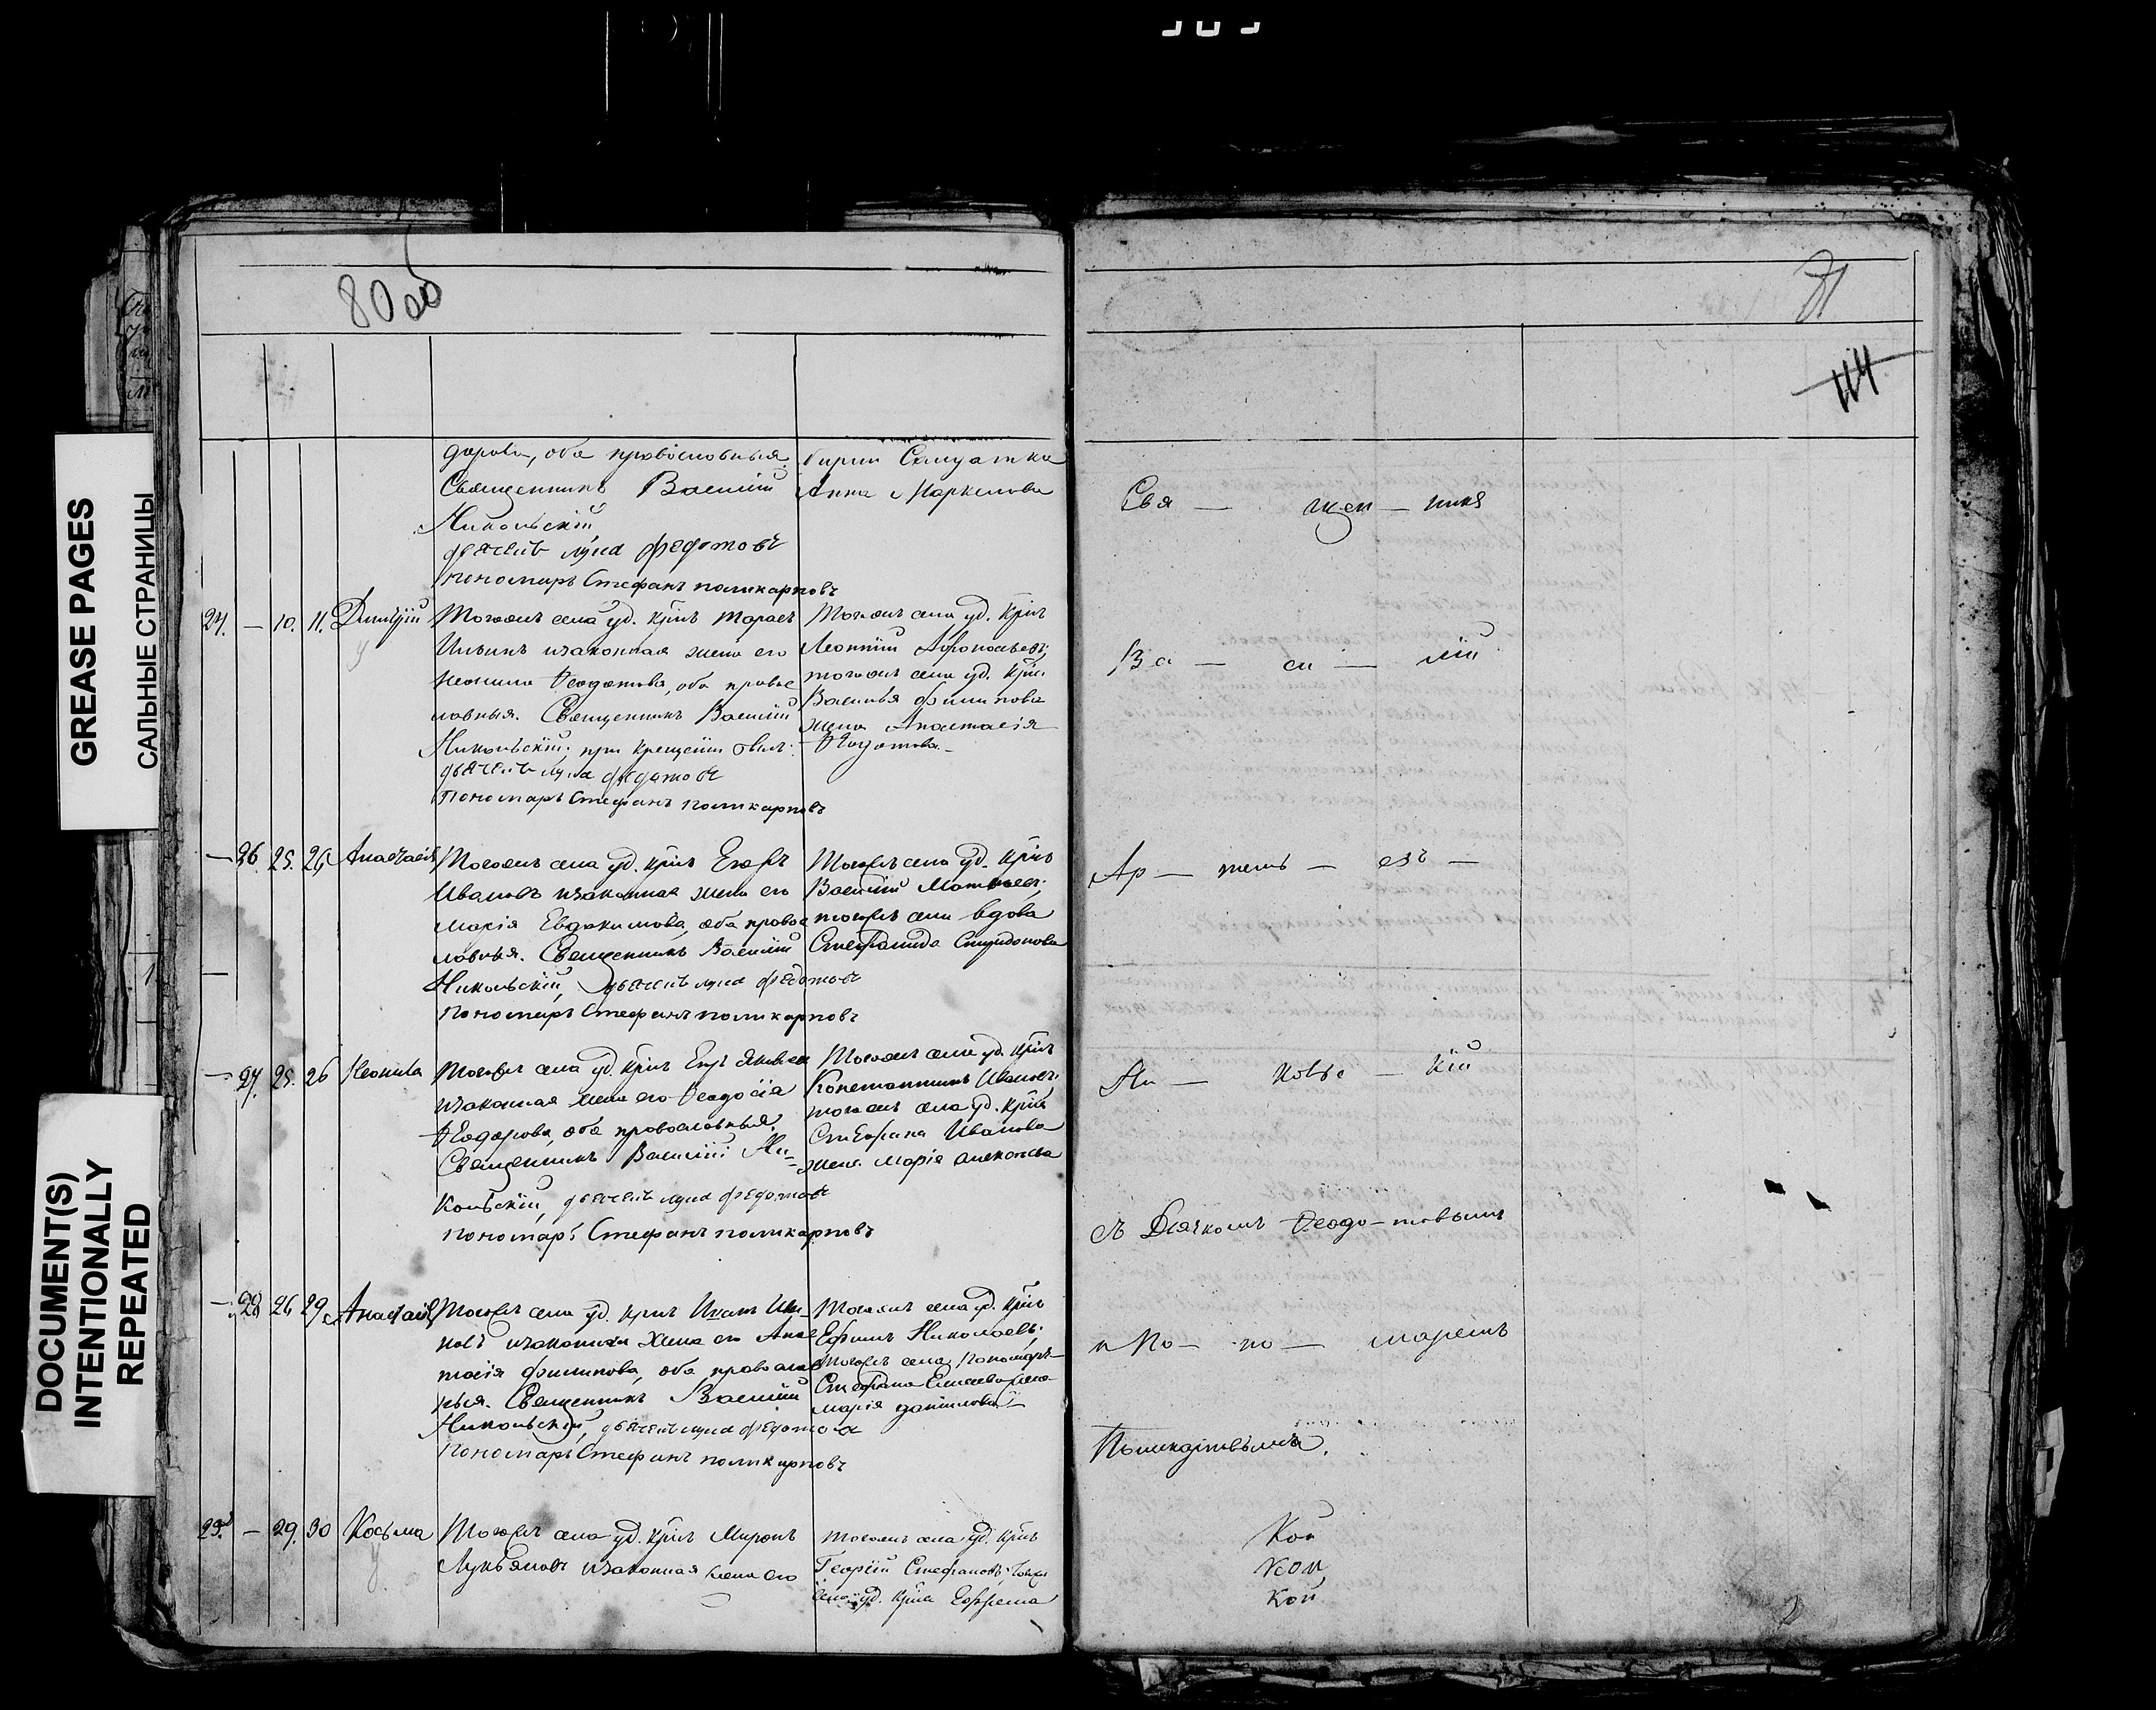 GREASE PAGES
САЛЬНЫЕ СТРАНИЦЫ
DOCUMENT(S)
INTENTIONALLY
REPEATED
80 об
81
114
дорова, оба православныя.
Священникъ Василій
Никольскій
дьячекъ лука федотовъ
пономарь Стефанъ поликарповъ
Анна Маркелова
24. — 10. 11. Димитрій
Тогожъ села уд. кр͠нъ Тарасъ
Ильинъ изаконная жена его
Неонила Ѳеодотова, оба правос
лавныя. Священникъ Василій
Никольскій; при крещеніи былъ:
дьячекъ лука федотовъ
пономарь Стефанъ поликарповъ
Тогожъ села уд. кр͠нъ
Леонтій Афонасьевъ;
тогожъ села уд. кр͠на
Василья Филипова
жена Анастасія
Ѳеодотова
— 26. 25. 26 Анастасія
Тогожъ села уд. кр͠нъ Егоръ
Ивановъ изаконная жена его
Марія Евдокимова, оба правос
лавныя. Священникъ Василій
Никольскій, дьячекъ лука федотовъ
пономарь Стефанъ поликарповъ
Тогожъ села уд. кр͠нъ
Василій Матвѣевъ;
тогожъ села вдова
Стефанида Спиридонова
— 27. 25. 26 Неонила
Тогожъ села уд. кр͠нъ
изаконная жена его Ѳеодосія
Ѳеодорова, оба православныя.
Священникъ Василій Ни-
кольскій, дьячекъ лука федотовъ
пономарь Стефанъ поликарповъ
Тогожъ села уд. кр͠нъ
Константинъ Ивановъ;
тогожъ села уд. кр͠на
Стефана Иванова
жена Марія
— 28 26 29 Анастасія
Тогожъ села уд. кр͠нъ Иванъ
новъ изаконная жена его Анас
тасія Филипова, оба православ
ныя. Священникъ Василій
Никольскій, дьячекъ лука федотовъ
пономарь Стефанъ поликарповъ
Тогожъ села уд. кр͠нъ
Ефимъ Николаевъ;
Тогожъ села пономаря
Стефана Елисеева жена
Марія данилова
25. — 29. 30 Косьма
Тогожъ села уд. кр͠нъ Миронъ
Лукьяновъ изаконная жена его
тогожъ села уд. кр͠нъ
Георгій Стефановъ;
села уд. кр͠на Ефрема
Свя — щен — никъ
Ва — си — лій
Ар — темь — евъ —
Ни — кольс — кій
съ Дьячкомъ Ѳеодо-товымъ
и По — но — маремъ
Поликарповымъ.